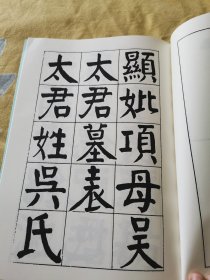 顯妣項母吳
太君墓表
太君姓吳氏